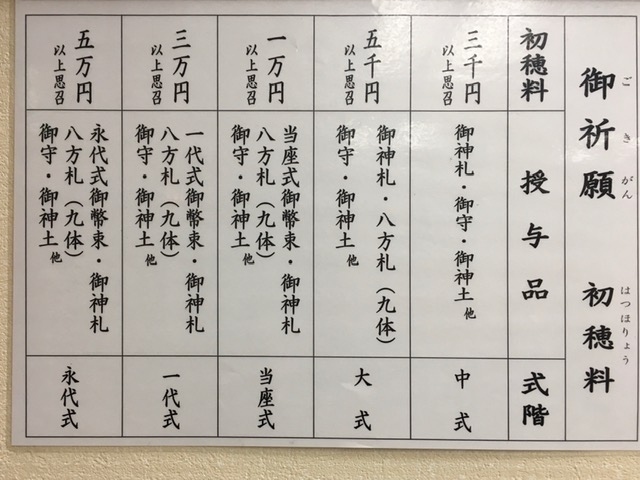 御祈願　初穂料
ごきがん　はつほりょう
初穂料　授与品　式階
三千円
以上思召
御神札・御守・御神土他
中式
五千円
以上思召
御神札・八方札（九体）
御守・御神土他
大式
一万円
以上思召
当座式御幣束・御神札
八方札（九体）
御守・御神土他
当座式
三万円
以上思召
一代式御幣束・御神札
八方札（九体）
御守・御神土他
一代式
五万円
以上思召
永代式御幣束・御神札
八方札（九体）
御守・御神土他
永代式